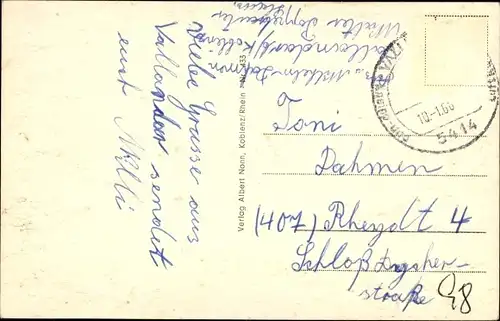 Liebe Grüsse aus
Vallendar sendet
euch Willi
Verlag Albert Nonn, Koblenz/Rhein Nr. 433
Wilhelm Dahmen
Vallendar/Koblenz
Walter
Toni
Dahmen
(407) Rheydt 4
Schloß
straße 98
10.-1.66
5414